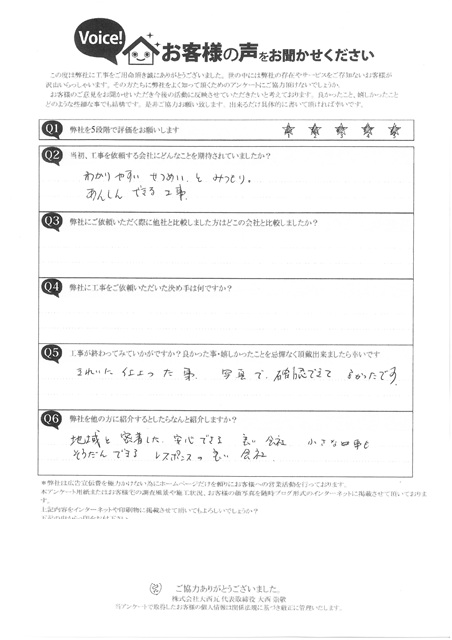 Voice!
お客様の声をお聞かせください
この度は弊社に工事をご用命頂き誠にありがとうございました。世の中には弊社の存在やサービスをご存知ないお客様が
沢山いらっしゃいます。その方たちに弊社をよく知って頂くためのアンケートにご協力頂けないでしょうか。
お客様のご意見をお聞かせいただき今後の活動に反映させていただきたいと考えております。良かったこと、嬉しかったこと
どのような些細な事でも結構です。是非ご協力お願い致します。出来るだけ具体的に書いて頂ければ幸いです。
Q1 弊社を5段階で評価をお願いします
Q2 当初、工事を依頼する会社にどんなことを期待されていましたか?
わかりやすい せつめい と みつもり。
あんしん できる 工事
Q3 弊社にご依頼いただく際に他社と比較しました方はどこの会社と比較しましたか?
Q4 弊社に工事をご依頼いただいた決め手は何ですか?
Q5 工事が終わってみていかがですか?良かった事・嬉しかったことを忌憚なく頂戴出来ましたら幸いです
きれいに 仕上った 事 写真で、確認できて よかったです
Q6 弊社を他の方に紹介するとしたらなんと紹介しますか?
地域と 密着した、安心できる 良い 会社 小さな事も
そうだんできる レスポンスの良い 会社
*弊社は広告宣伝費を極力かけない為にホームページだけを頼りにお客様への営業活動を行っております。
本アンケート用紙またはお客様宅の調査風景や施工状況、お客様の顔写真を随時ブログ形式のインターネットに掲載させて頂いておりま
す。
上記内容をインターネットや印刷物に掲載させて頂いてもよろしいでしょうか?
ご協力ありがとうございました。
株式会社大西瓦 代表取締役 大西
当アンケートで取得したお客様の個人情報は関係法規に基づき厳正に管理いたします。